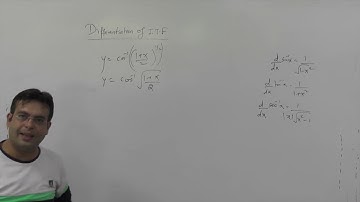 Differentiation of I.T.F
y = cos⁻¹((1+x/2)^(1/2))
y = cos⁻¹ √(1+x/2)
d/dx sin⁻¹x = 1/√(1-x²)
d/dx tan⁻¹x = 1/(1+x²)
d/dx sec⁻¹x = 1/(|x|√(x²-1))